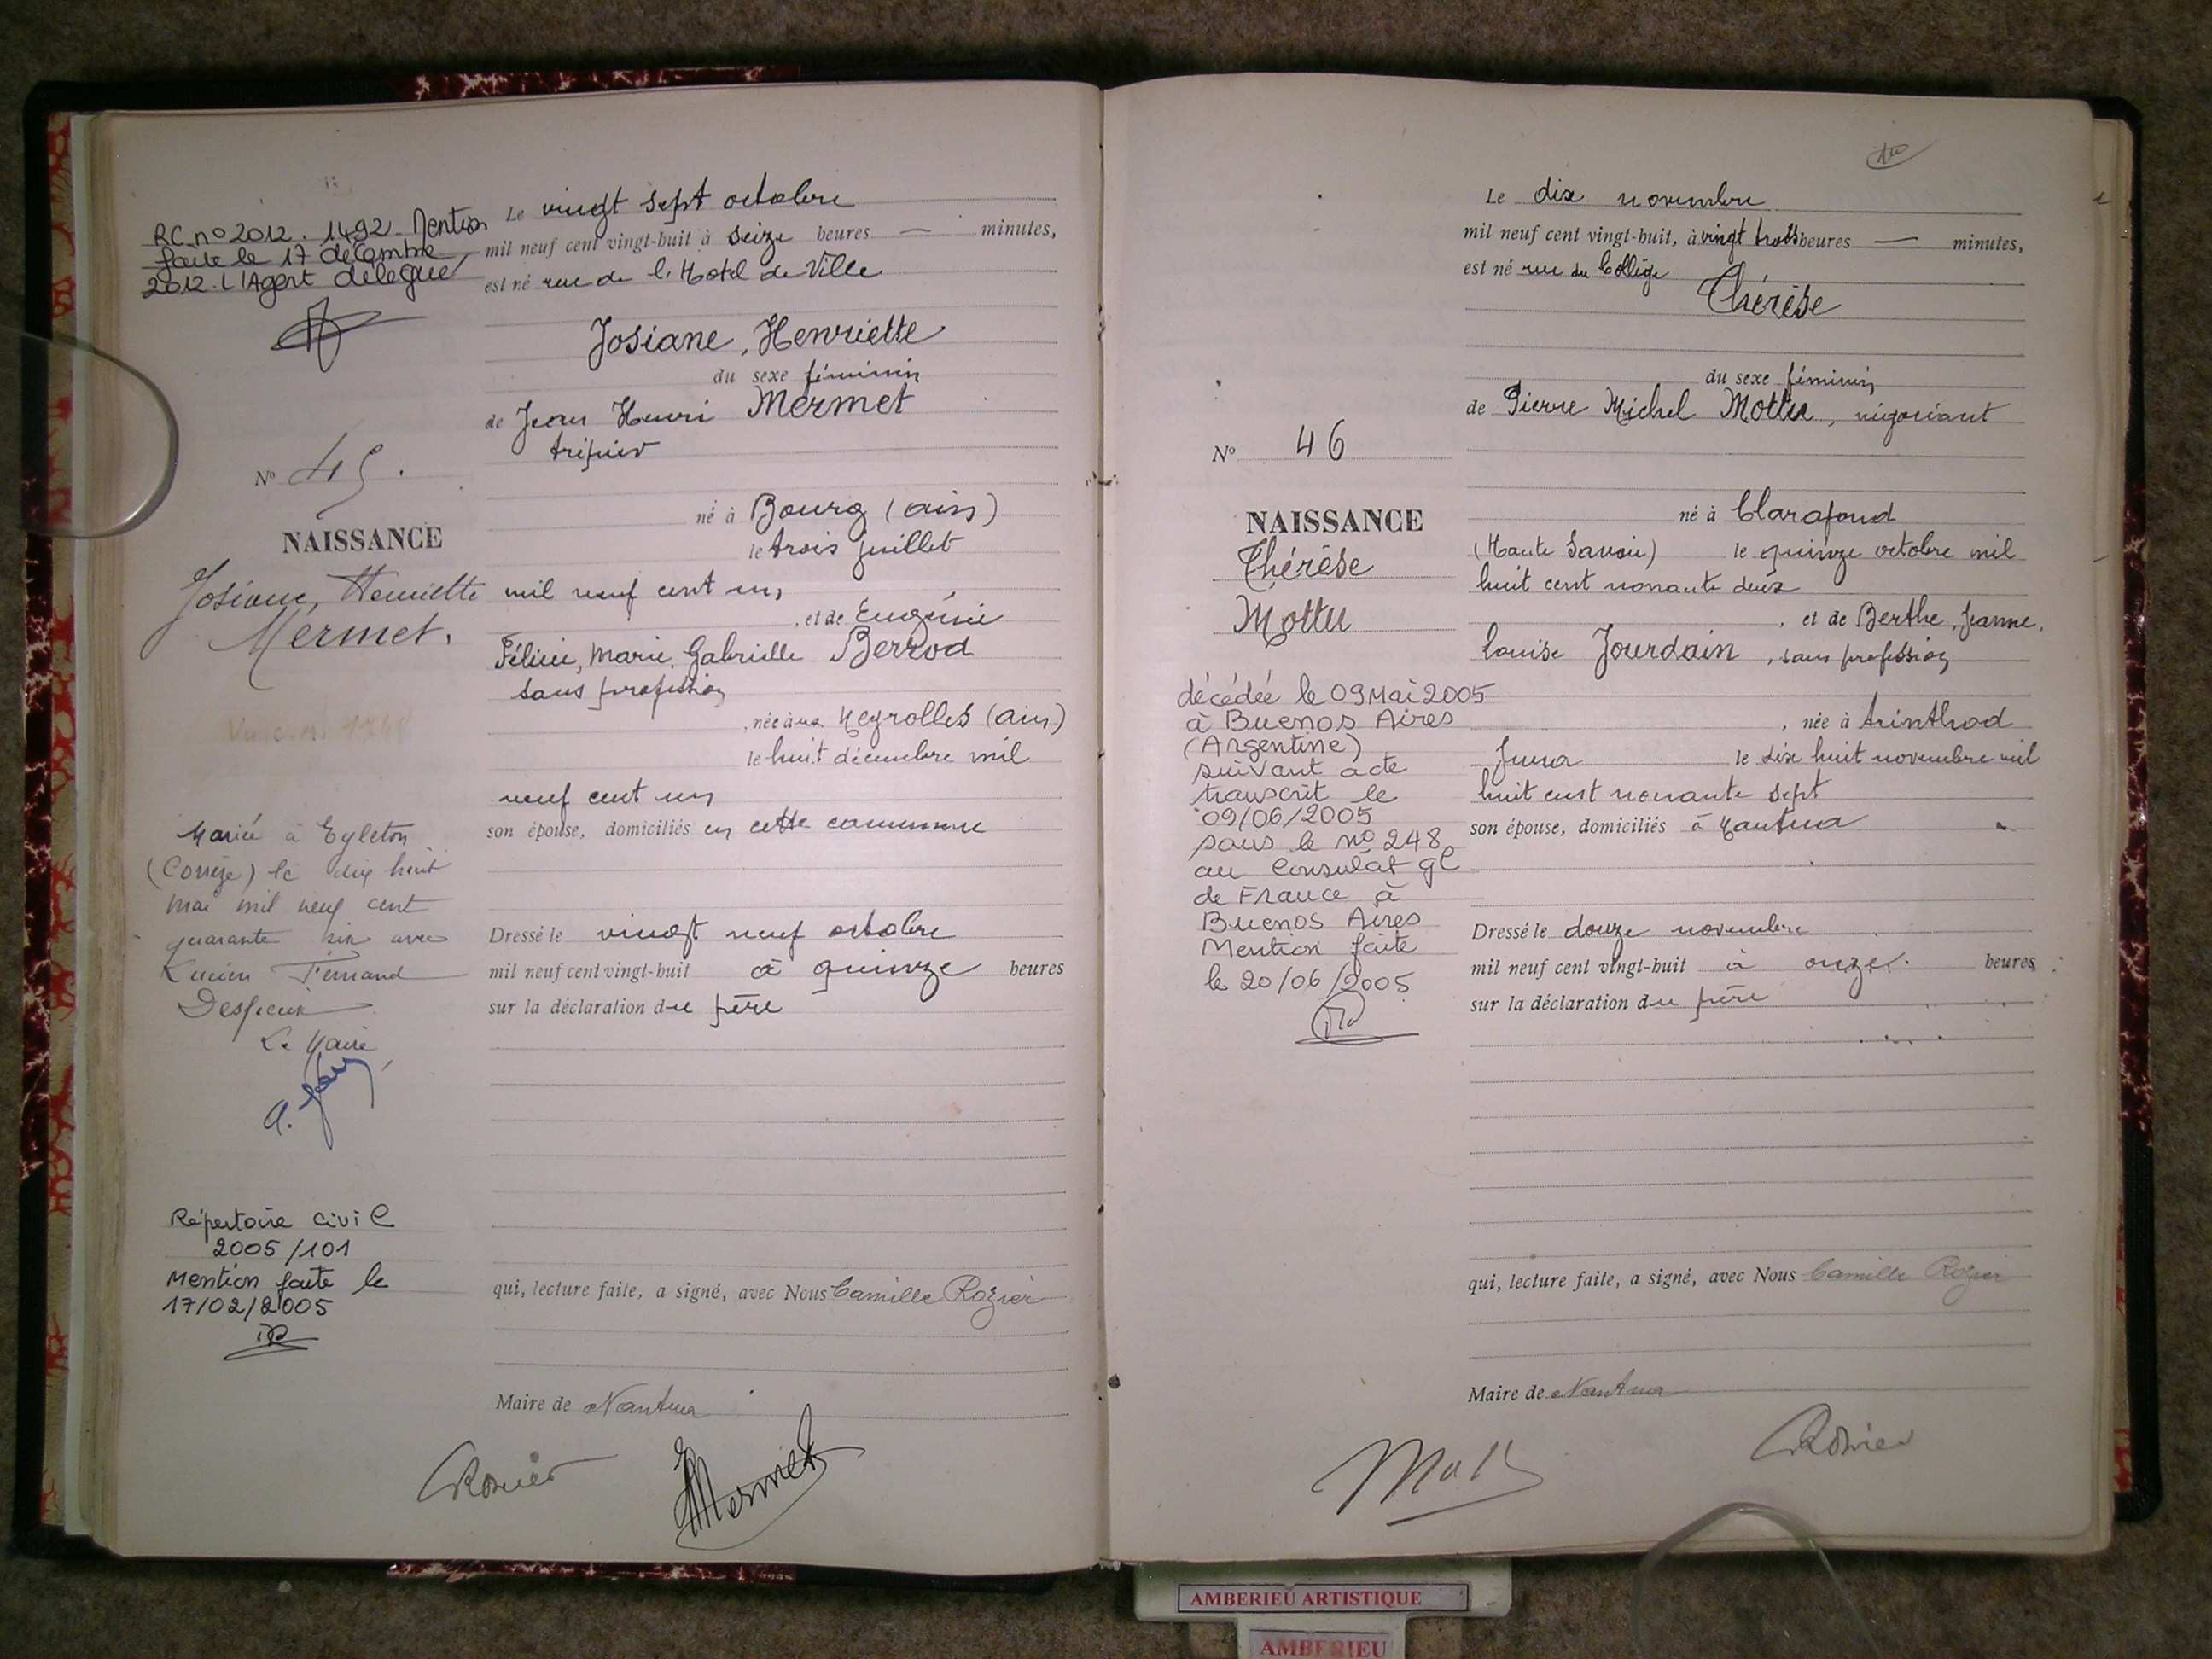 RC nº 2012. 1492. Mention
faite le 17 décembre
2012. L'Agent délégué
Nº 45.
NAISSANCE
Josiane, Henriette
Mermet.
Mariée à Egleton
(Corrèze) le dix huit
mai mil neuf cent
quarante six avec
Lucien Fernand
Despeux
Le Maire
Répertoire civil
2005/101
Mention faite le
17/02/2005
Le vingt sept octobre
mil neuf cent vingt-huit à seize heures — minutes,
est né rue de l'Hotel de Ville
Josiane, Henriette
du sexe féminin
de Jean Henri Mermet
tripier
né à Bourg (ain)
le trois juillet
mil neuf cent un,
, et de Eugénie
Félicie, Marie, Gabrielle Berrod
sans profession
, née à Neyrolles (ain)
le huit décembre mil
neuf cent un
son épouse, domiciliés en cette commune
Dressé le vingt neuf octobre
mil neuf cent vingt-huit à quinze heures
sur la déclaration du père
qui, lecture faite, a signé, avec Nous Camille Rozier
Maire de Nantua
Rozier Mermet
Nº 46
NAISSANCE
Thérèse
Mottu
décédée le 09 Mai 2005
à Buenos Aires
(Argentine)
suivant acte
transcrit le
09/06/2005
sous le nº 248
au Consulat gl
de France à
Buenos Aires
Mention faite
le 20/06/2005
Le dix novembre
mil neuf cent vingt-huit, à vingt trois heures — minutes,
est né rue du Collège
Thérèse
du sexe féminin
de Pierre Michel Mottu, négociant
né à Clarafond
(Haute Savoie) le quinze octobre mil
huit cent nonante deux
, et de Berthe, Jeanne,
Louise Jourdain, sans profession
, née à Arinthod
Jura le dix huit novembre mil
huit cent nonante sept
son épouse, domiciliés à Nantua
Dressé le douze novembre
mil neuf cent vingt-huit à onze heures
sur la déclaration du père
qui, lecture faite, a signé, avec Nous Camille Rozier
Maire de Nantua
Rozier
AMBERIEU ARTISTIQUE
AMBERIEU